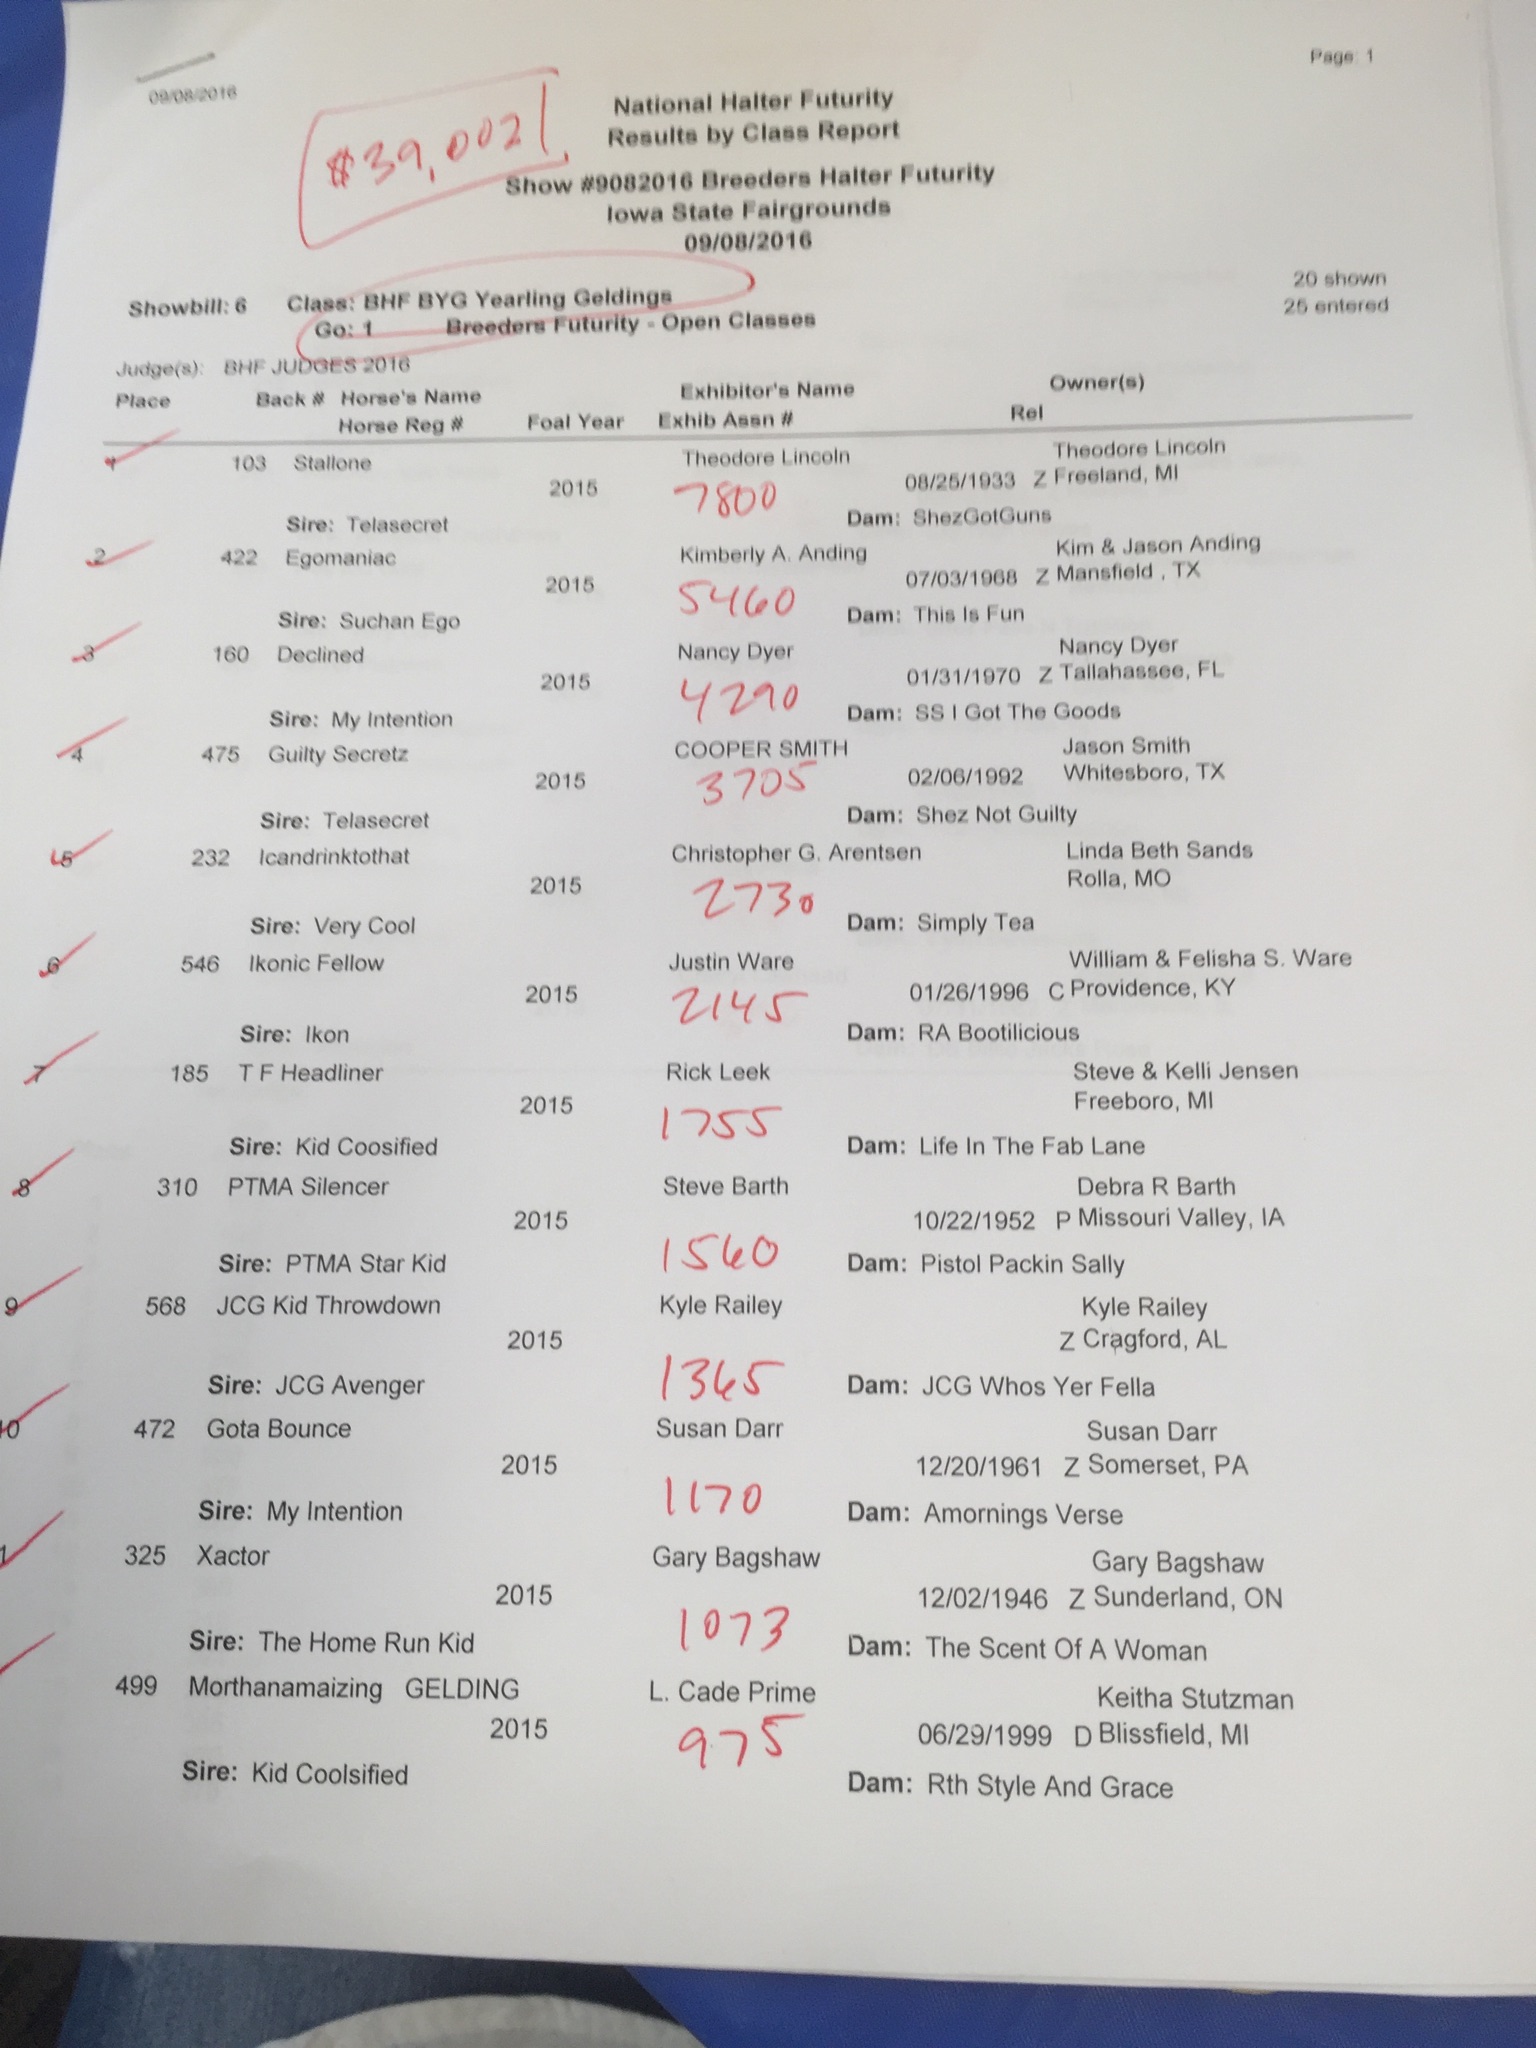 Page: 1
09/08/2016
$39,002
National Halter Futurity
Results by Class Report
Show #9082016 Breeders Halter Futurity
Iowa State Fairgrounds
09/08/2016
20 shown
Showbill: 6 Class: BHF BYG Yearling Geldings
25 entered
Go: 1 Breeders Futurity - Open Classes
Judge(s): BHF JUDGES 2016
Place Back # Horse's Name Exhibitor's Name Owner(s)
Horse Reg # Foal Year Exhib Assn # Rel
1 103 Stallone Theodore Lincoln Theodore Lincoln
2015 7800 08/25/1933 Z Freeland, MI
Sire: Telasecret Dam: ShezGotGuns
2 422 Egomaniac Kimberly A. Anding Kim & Jason Anding
2015 5460 07/03/1968 Z Mansfield , TX
Sire: Suchan Ego Dam: This Is Fun
3 160 Declined Nancy Dyer Nancy Dyer
2015 4290 01/31/1970 Z Tallahassee, FL
Sire: My Intention Dam: SS I Got The Goods
4 475 Guilty Secretz COOPER SMITH Jason Smith
2015 3705 02/06/1992 Whitesboro, TX
Sire: Telasecret Dam: Shez Not Guilty
5 232 Icandrinktothat Christopher G. Arentsen Linda Beth Sands
2015 2730 Rolla, MO
Sire: Very Cool Dam: Simply Tea
6 546 Ikonic Fellow Justin Ware William & Felisha S. Ware
2015 2145 01/26/1996 C Providence, KY
Sire: Ikon Dam: RA Bootilicious
7 185 T F Headliner Rick Leek Steve & Kelli Jensen
2015 1755 Freeboro, MI
Sire: Kid Coosified Dam: Life In The Fab Lane
8 310 PTMA Silencer Steve Barth Debra R Barth
2015 1560 10/22/1952 P Missouri Valley, IA
Sire: PTMA Star Kid Dam: Pistol Packin Sally
9 568 JCG Kid Throwdown Kyle Railey Kyle Railey
2015 1365 Z Cragford, AL
Sire: JCG Avenger Dam: JCG Whos Yer Fella
10 472 Gota Bounce Susan Darr Susan Darr
2015 1170 12/20/1961 Z Somerset, PA
Sire: My Intention Dam: Amornings Verse
1 325 Xactor Gary Bagshaw Gary Bagshaw
2015 1073 12/02/1946 Z Sunderland, ON
Sire: The Home Run Kid Dam: The Scent Of A Woman
499 Morthanamaizing GELDING L. Cade Prime Keitha Stutzman
2015 975 06/29/1999 D Blissfield, MI
Sire: Kid Coolsified Dam: Rth Style And Grace